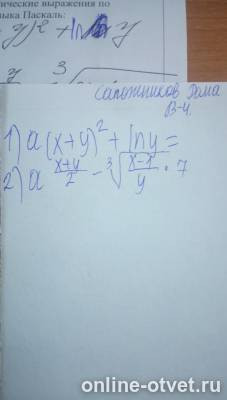 ические выражения по
ыка Паскаль:
y)² + ln y
Сапожников Рома
В-4.
1) a(x+y)² + ln y =
2) a^{\frac{x+y}{2}} - \sqrt[3]{\frac{x-1}{y}} · 7
online-otvet.ru